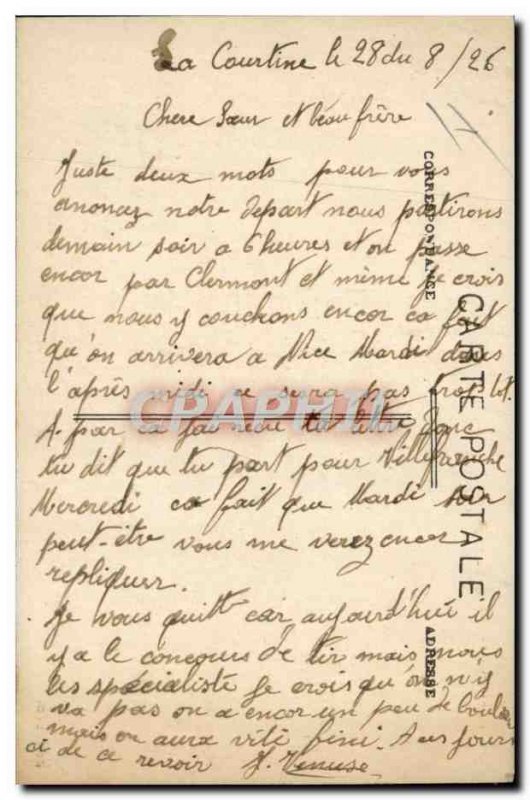 La Courtine le 28 du 8/26
Chere Sœur et beau frère
Juste deux mots pour vous
anoncez notre depart nous partirons
demain soir a 6 heures et on passe
encor par Clermont et même je crois
que nous y couchons encor ca fait
qu'on arrivera a Nice Mardi dans
l'après midi ce sera pas trot tot.
A par ca jai recu ta lettre donc
tu dit que tu part pour Villefranche
Mercredi ca fait que Mardi soir
peut-être vous me verez encor
repliquer.
Je vous quitt car aujourd'hui il
y a le concours de tir mais nous
les spécialiste je crois qu'on n'y
va pas on a encor un peu de boulot
mais on aura vite fini. A ces jours
ci de ce revoir
CORRESPONDANCE
CARTE POSTALE
ADRESSE
CPAPHIL